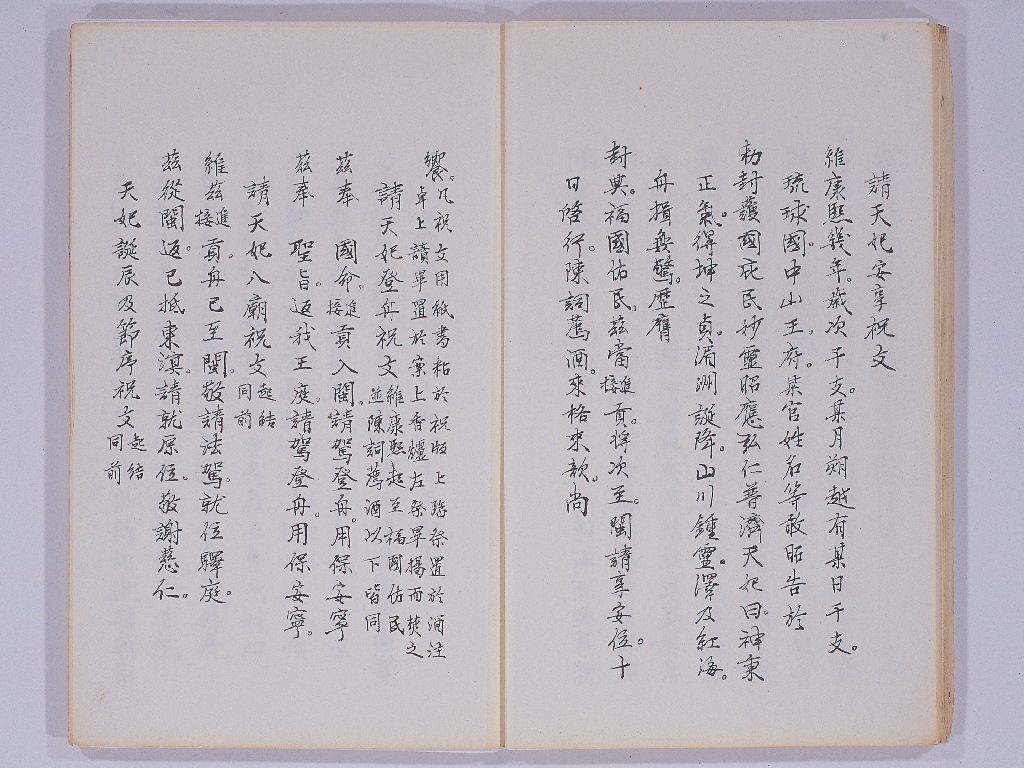 請天妃安享祝文
維康熙幾年。歲次干支。某月朔越有某日干支。
琉球國。中山王。府。某官姓名等敢昭告於
勅封護國庇民妙靈昭應弘仁普濟天妃。曰。神秉
正氣。得坤之貞。湄洲誕降。山川鍾靈。澤及紅海。
舟楫無驚。歷膺
封典。福國佑民。茲當接進貢。将次至。閩請享安位。十
日隆行。陳詞薦酒。來格來歆。尚
饗。凡祝文用紙書粘於祝版上臨祭置於酒注
卓上讀畢置於案上香爐左祭畢揭而焚之
請天妃登舟祝文維康熙起至福國佑民
並陳詞薦酒以下皆同
茲奉　國命。接進貢入閩。請駕登舟。用保安寧
茲奉　聖旨。返我王庭。請駕登舟。用保安寧。
請天妃入廟祝文起結
同前
維茲接進貢。舟已至閩。敬請法駕。就位驛庭。
茲從閩返。已抵東溟。請就原位。敬謝慈仁。
天妃誕辰及節序祝文起結
同前